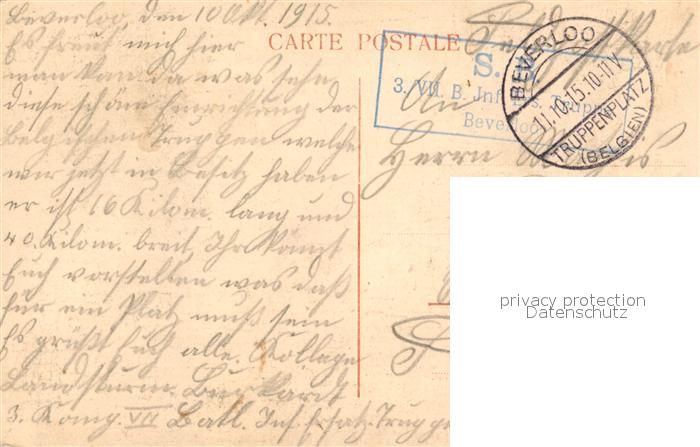 Beverloo, den 10 Okt. 1915.
Es freut mich hier
man kan da was sehn,
diese schöne Einrichtung der
Belgischen Truppen welche
wir jetzt in Besitz haben
er ist 16 Kilom. lang und
40. Kilom. breit, Ihr könnt
Euch vorstellen was daß
für ein Platz muß sein
Es grüßt Euch alle. Kollege
Landsturm. Burkardt
3. Komp. VII Batl. Inf. Ersatz-Truppe
CARTE POSTALE
Feldpostkarte
S. B.
3./VII. B. Inf. Ers. Truppe
Beverloo
BEVERLOO
11.10.15.10-11V
TRUPPENPLATZ
(BELGIEN)
An
Herrn
privacy protection
Datenschutz